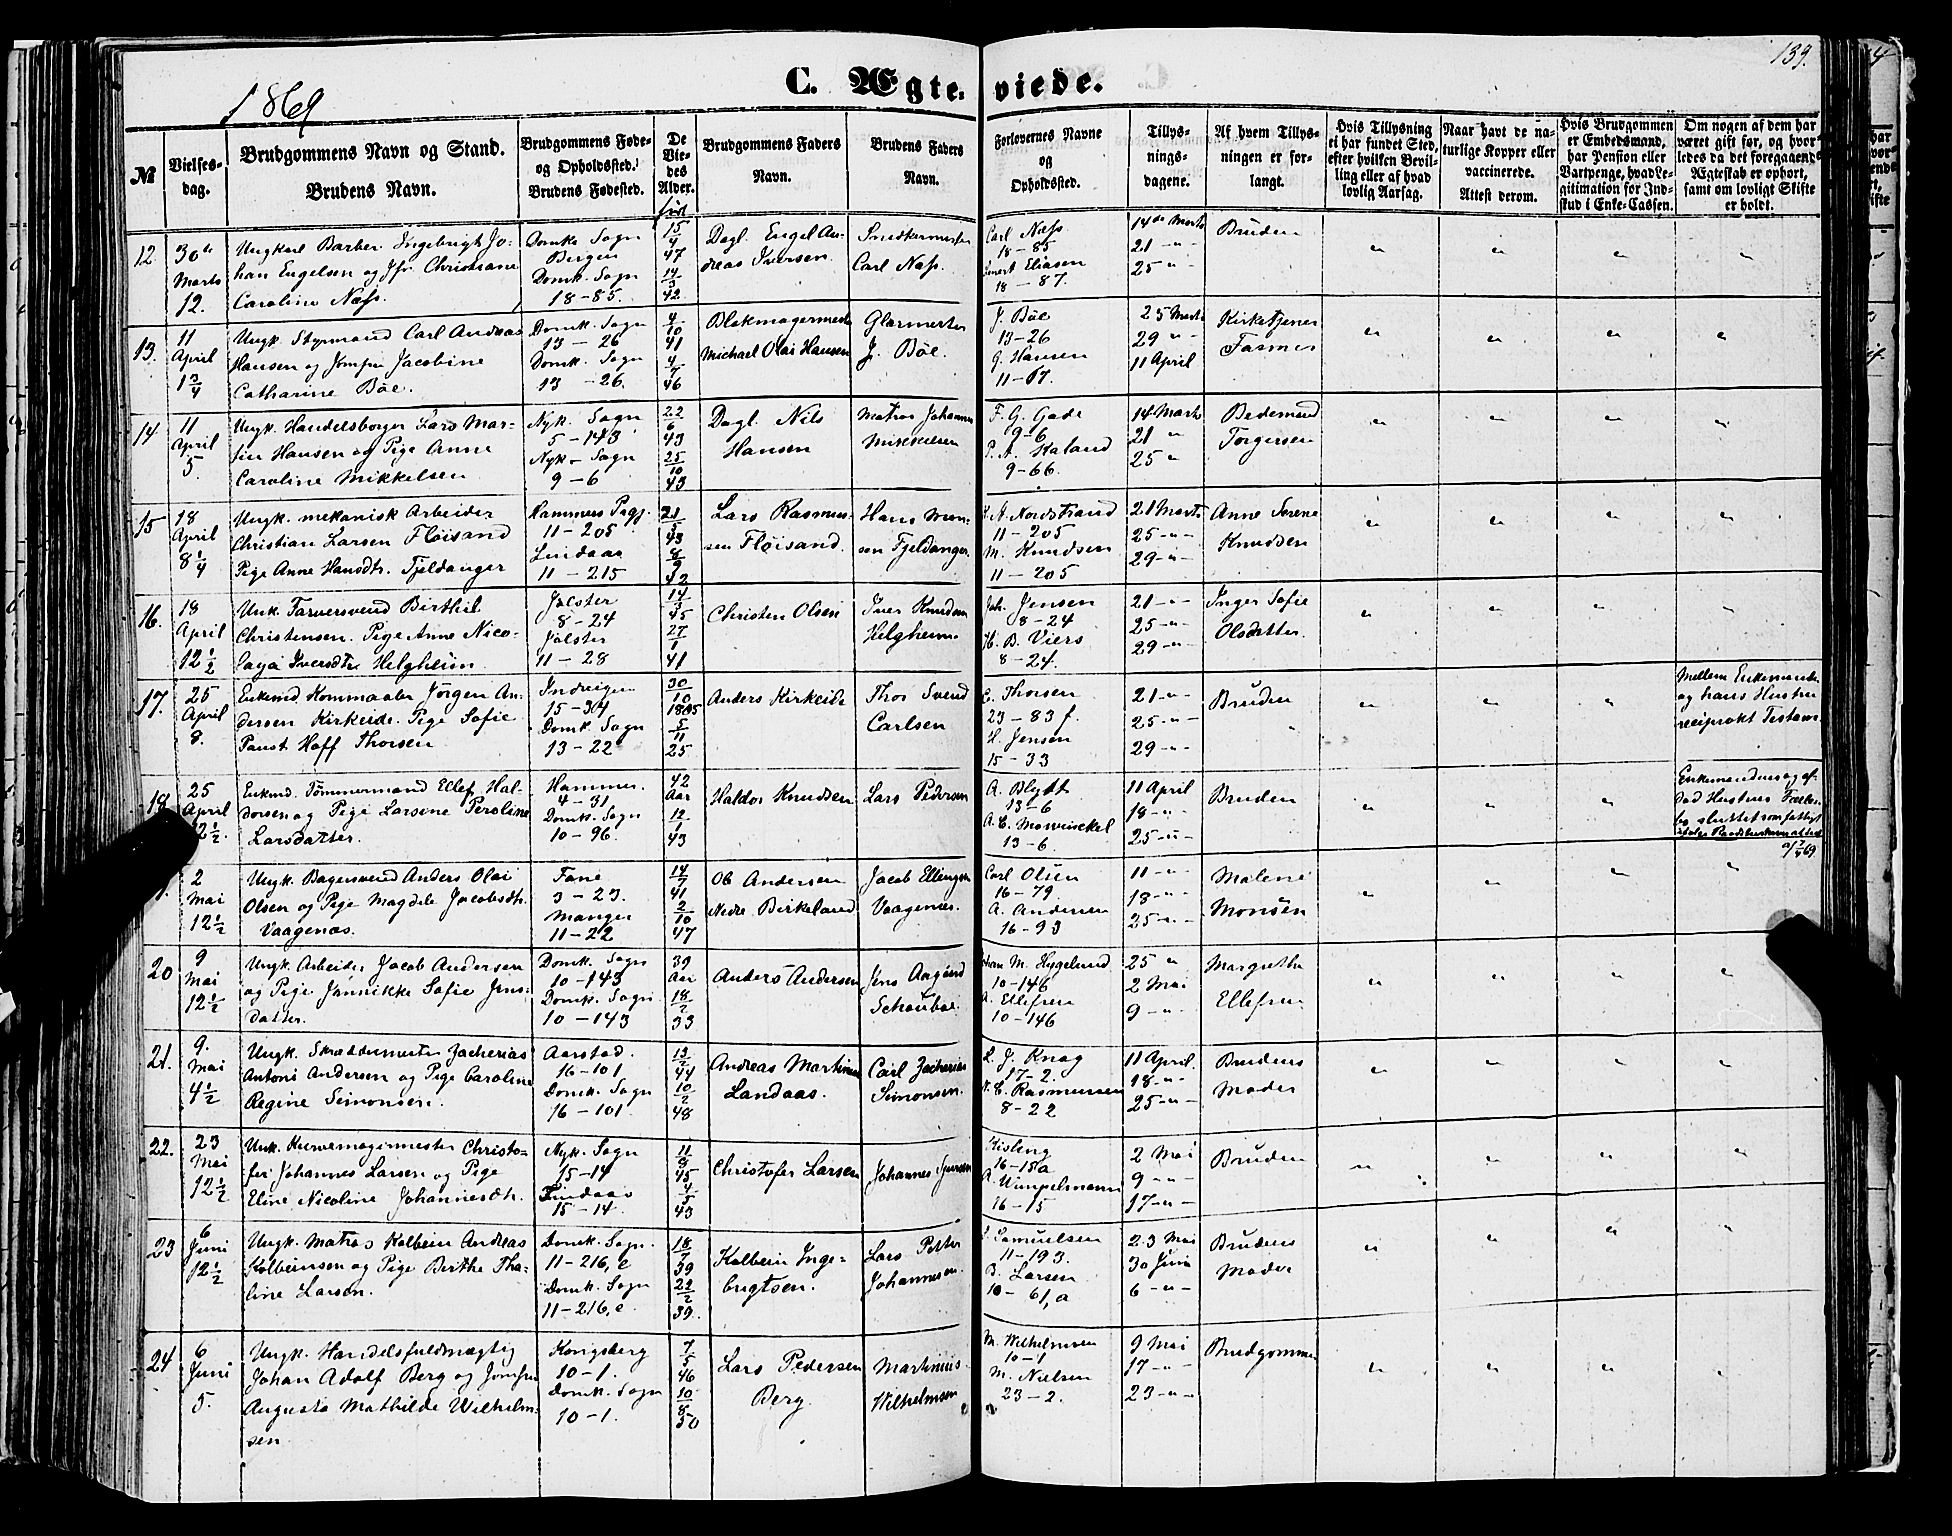 139.
1869
C. Ægteviede.
№
Vielsesdag.
Brudgommens Navn og Stand.
Brudens Navn.
Brudgommens Føde- og Opholdssted.
Brudens Fødested.
De Viedes Alder.
født
Brudgommens Faders Navn.
Brudens Faders Navn.
Forlovernes Navne og Opholdssted.
Tillysningsdagene.
Af hvem Tillysningen er forlangt.
Hvis Tillysning ei har fundet Sted, efter hvilken Bevilling eller af hvad lovlig Aarsag.
Naar havt de naturlige Kopper eller vaccinerede.
Attest derom.
Hvis Brudgommen er Embedsmand, har Pension eller Vartpenge, hvad Legitimation for Indskud i Enke-Cassen.
Om nogen af dem har været gift før, og hvorledes da det foregaaende Ægteskab er ophørt, samt om lovligt Skifte er holdt.
12. 30te Marts 12.
Ungkarl Barber Ingebrigt Jo-
han Engelsen og Jfr. Christiane
Caroline Næss.
Domk. Sogn
Bergen
Domk. Sogn
18-85.
15/4 47
14/3 42
Dagl. Engel An-
dreas Iversen
Snedkermester
Carl Næss.
Carl Næss
18-85
Eliasen
18-87.
14de Marts
21 - "
25 "
Bruden
13. 11 April 1 3/4
Ungk. Styrmand Carl Andreas
Hansen og Jomfru Jacobine
Catharine Bøe.
Domk. Sogn
13-26
Domk. Sogn
13-26.
4/10 41
4/7 46
Blokmagermester
Michael Olai Hansen
Glarmester
J. Bøe.
J. Bøe
13-26
G. Hansen
11-67.
25 Marts
29 "
11 April
Kirketjener
Fasmer
14. 11 April 5.
Ungk. Handelsborger Lars Mar-
tin Hansen og Pige Anne
Caroline Mikkelsen
Nyk. Sogn
5-143
Nyk. Sogn
9-6
22/6 43
25/10 43
Dagl. Nils
Hansen
Matros Johannes
Mikkelsen
F. G. Gade
9-6
P. A. Kaland
9-66.
14 Marts
21 "
25 "
Bedemand
Torgersen
15 18 April 8 1/4
Ungk. mekanisk Arbeider
Christian Larsen Fløisand
Pige Anne Hansdtr. Fjeldanger
Hammers Prgj.
11-205
Lindaas
11-215
21/5 43
8/9 42
Lars Rasmus-
sen Fløisand.
Hans Mon-
sen Fjeldanger.
A. Nordstrand
11-205
M. Knudsen
11-205
21 Marts
25 - "
29 - "
Anne Serene
Knudsen
16. 18 April 12 1/2
Unk. Farversvend Birthil
Christensen. Pige Anne Nico-
laya Iversdtr Helgheim
Jølster
8-24
Jølster
11-28
14/3 45
27/1 41
Christen Olsen
Iver Knudsen
Helgheim
Joh. Jensen
8-24
H. B. Viers
8-24.
21 - "
25 - "
29 - "
Inger Sofie
Olsdatter
17. 25 April 8.
Enkmd Kommaaler Jørgen An-
dersen Kirkeide. Pige Sofie
Faust Hoff Thorsen
Indvigen
15-34
Domk. Sogn
13-22
30/10 1805
5/11 25
Anders Kirkeide
Thor Svend
Carlsen
C. Thorsen
23-83 f.
H. Jensen
15-33
21 - "
25 - "
29 - "
Bruden
Mellem Enkemanden
og hans Hustru
reciprokt Testam.
18. 25 April 12 1/2.
Enkmd. Tømmermand Ellef Hal-
dorsen og Pige Larsine Peroline
Larsdatter.
Hammer.
4-31
Domk. Sogn
10-96.
42 Aar
12/1 43
Haldor Knudsen
Lars Pedersen
A. Blytt
13-6
13-6.
11 April
18 - "
25 - "
Bruden
Enkemandens og af-
død Hustrus Fælles-
bo sluttet som fattigt
2 Mai 12 1/2
Ungk. Bagersvend Anders Olai
Olsen og Pige Magdele Jacobsdtr.
Vaagenæs.
Fane
3-23.
Manger
11-22
14/7 41
2/10 47
Ole Andersen
Nedre Birkeland
Jacob Ellingsen
Vaagenæs.
Carl Olsen
16-79
A. Andersen
16-93
11 - "
18 - "
25 - "
Malene
Monsen
20 9 Mai 12 1/2
Ungk. Arbeider Jacob Andersen
og Pige Jannikke Sofie Jens-
datter.
Domk. Sogn
10-143
Domk. Sogn.
10-143
39 Aar
18/2 33
Anders Andersen
Jens Aagaard
Schoubo.
M. Hygelund
10-146
A. Ellefsen
10-146
25 "
2 Mai
9 - "
Margrethe
Ellefsen
21. 9. Mai 4 1/2
Ungk. Skræddermester Zacherias
Antoni Andersen og Pige Caroline
Regine Simonsen.
Aarstad.
16-101
Domk. Sogn
16-101.
13/7 44
10/2 48
Andreas Martinus
Landaas.
Carl Zacherias
Simonsen.
L. J. Knag
17-2.
C. Rasmussen
8-22
11 April.
18 - "
25 - "
Brudens
Moder
22. 23 Mai 12 1/2
Unk. Kurvemagermester Christo-
fer Johannes Larsen og Pige
Eline Nicoline Johannesdtr.
Nyk. Sogn
15-14
Lindaas
15-14.
11/8 45
4/5 43
Christofer Larsen
Johannes
Kisling
16-15a
A. Wimpelmann
16-15
2 Mai
9 - "
17 - "
Bruden
23 6 Juni 12 1/2
Ungk. Matros Kolbein Andreas
Kolbeinsen og Pige Berthe Tha-
line Larsen.
Domk. Sogn.
11-216, e
Domk. Sogn
11-216, e.
18/7 39
22/2 39.
Kolbein Inge-
brigtsen.
Lars Petter
Johannesen.
Samuelsen
11-193.
B. Larsen
10-61, a
23 Mai
30 Juni
6 - "
Brudens
Moder
24 6 Juni 5.
Ungk. Handelsfuldmægtig
Johan Adolf Berg og Jomfru
Augusta Mathilde Wilhelm-
sen.
Kongsberg
10-1.
Domk. Sogn
10-1.
7/5 46
10/8 50
Lars Pedersen
Berg.
Martinius
Wilhelmsen
M. Wilhelmsen
10-1
M. Nielsen
23-2.
9 Mai
17 - "
23 - "
Brudgommen